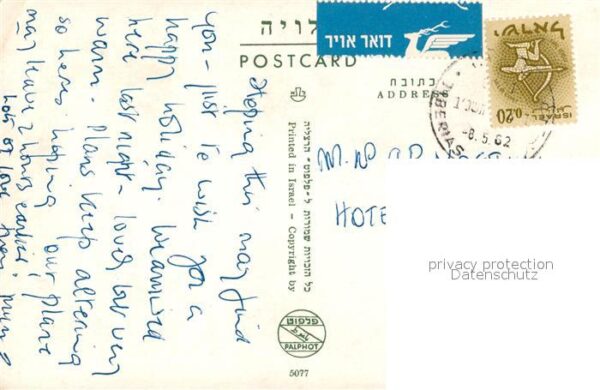 Hoping this may find
you - just to wish you a
happy holiday. We arrived
here last night - lovely but very
warm. Plans keep altering
so here's hoping our plane
may leave 2 hours earlier!
Lots of love from
גלויה
POSTCARD
דואר אויר
כתובת
ADDRESS
ישראל
ISRAEL
0.20
TIBERIAS
-8.5.62
HOTE
privacy protection
Datenschutz
כל הזכויות שמורות ל-פלפוט - הרצליה
Printed in Israel - Copyright by
פלפוט
PALPHOT
5077